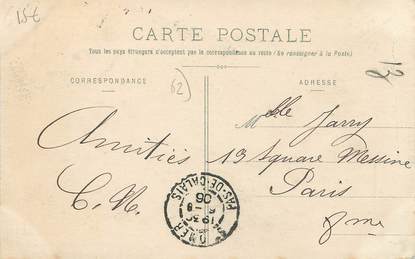 15€
CARTE POSTALE
Tous les pays étrangers n'acceptent pas la correspondance au recto (Se renseigner à la Poste)
CORRESPONDANCE
ADRESSE
62
Amitiés
C. N.
Mlle Jarry
19 Square Messine
Paris
8me
OMER
PAS-DE-CALAIS
19 30
06